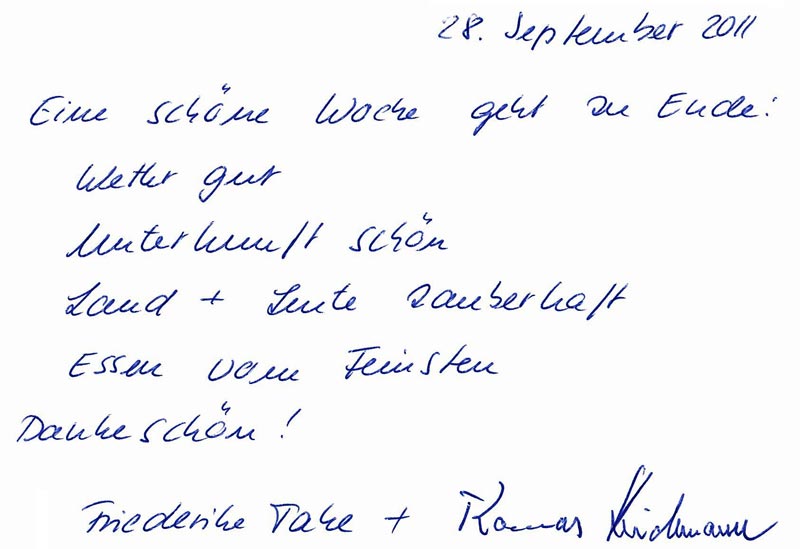 28. September 2011
Eine schöne Woche geht zu Ende:
Wetter gut
Unterkunft schön
Land + Leute zauberhaft
Essen vom Feinsten
Dankeschön!
Friederike Take + Thomas